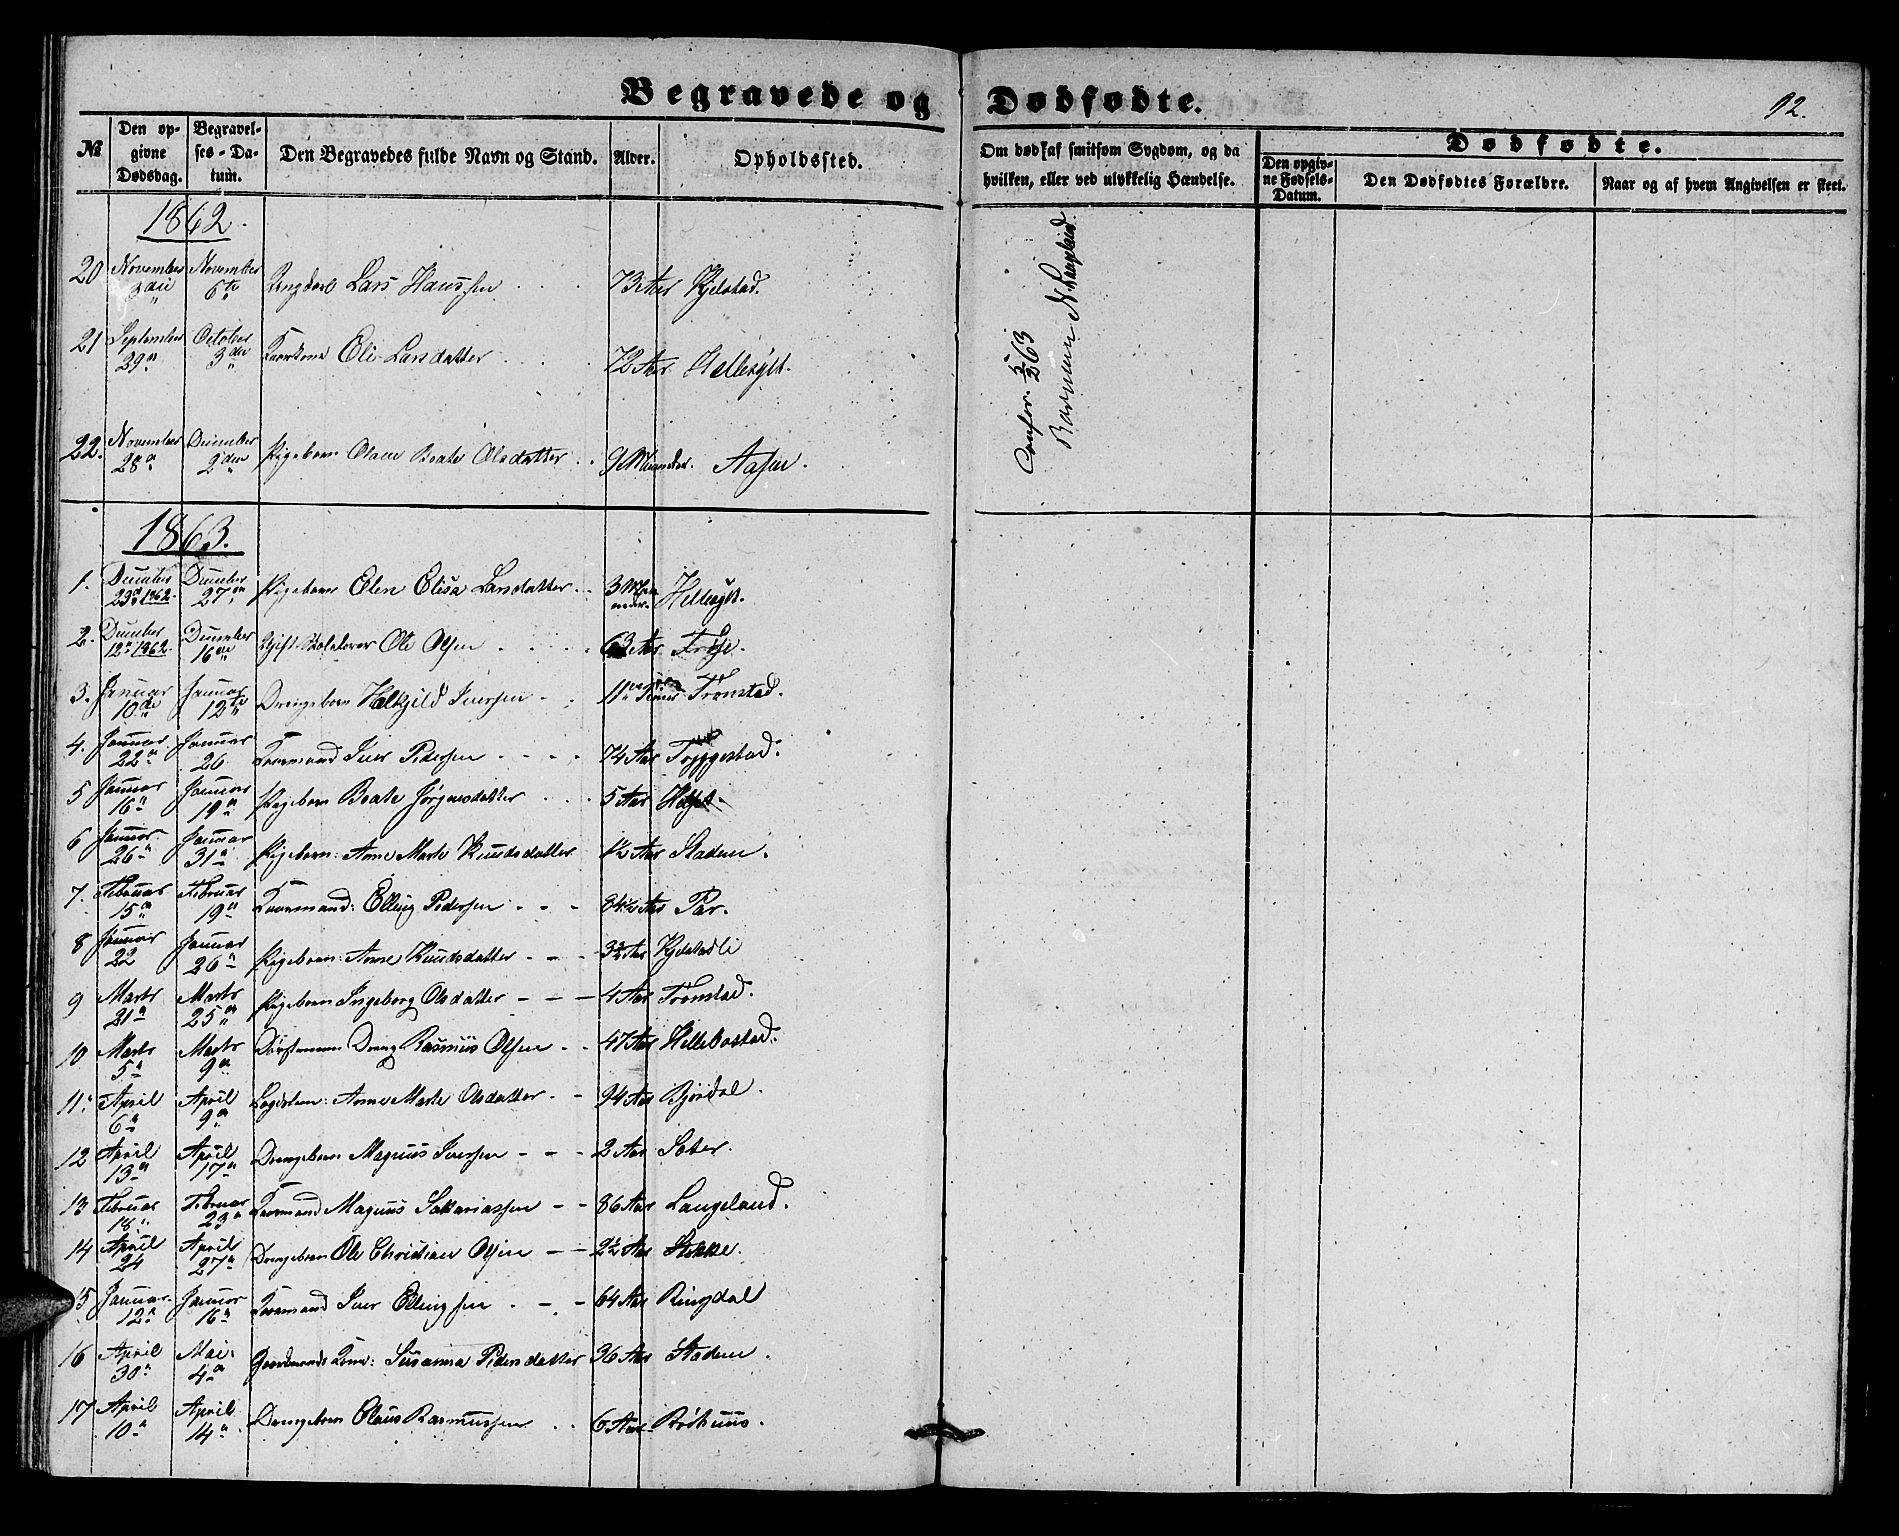 Begravede og Dødfødte.
92.
№
Den opgivne Dødsdag.
Begravelses-Datum.
Den Begravedes fulde Navn og Stand.
Alder.
Opholdssted.
Om død af smitsom Sygdom, og da hvilken, eller ved ulykkelig Hændelse.
Dødfødte.
Den opgivne Fødsels-Datum.
Den Dødfødtes Forældre.
Naar og af hvem Angivelsen er skeet.
1862.
20 November 3die November 6te Lars Hanssen 73 Aar Kjelstad.
21 September 29 October 3die Eli Larsdatter 72 Aar Hellesylt.
22. November 28 December 2den Pigebarn Olave Beate Olsdatter 9 Maaneder. Aasen.
Confer. 5/2 63
N. Langeland.
1863.
1. December 23 1862. December 27 Pigebarn Elen Elisa Larsdatter 3 Maaneder. Hellesylt.
2. December 12 1862. December 16 Gift Ole Olsen 63 Aar Frøse.
3. Januar 10de Januar 12te Drengebarn Iversen 11 Tronstad.
4. Januar 22 Januar 26 Kaarmand Iver Pedersen 74 Aar Tryggestad.
5 Januar 16 Januar 19 Pigebarn Beate Jørgensdatter 5 Aar
6 Januar 26 Januar 31 Pigebarn: Anne Marte Knudsdatter 1½ Aar Stadem.
7. Februar 15 Februar 19 Kaarmand: Elling Pedersen 84½ Aar
8 Januar 22 Januar 26 Pigebarn: Anne Knudsdatter Aar Kjelstadli
9 Marts 21 Marts 25 Pigebarn Ingeborg Olsdatter 4 Aar Tronstad.
10 Marts 5 Marts 9 Dreng Rasmus Olsen 47 Aar Hellebostad.
11. April 6 April 9 Anne Marte Olsdatter 94 Aar Bjørdal.
12 April 13 April 17 Drengebarn Magnus Iversen 2 Aar Sæter.
13 Februar 18 Februar 23 Kaarmand Magnus Sakariassen 86 Aar Langeland.
14 April 24 April 27 Drengebarn Ole Christian Olsen 2½ Aar Stokke.
15 Januar 12 Januar 16 Kaarmand Iver Ellingsen 64 Aar Ringdal
16 April 30 Mai 4 Gaardmands Kone: Susanna Pedersdatter 36 Aar Stadem.
17 April 10 April 14 Drengebarn Claus Rasmussen 6 Aar Røthuus.